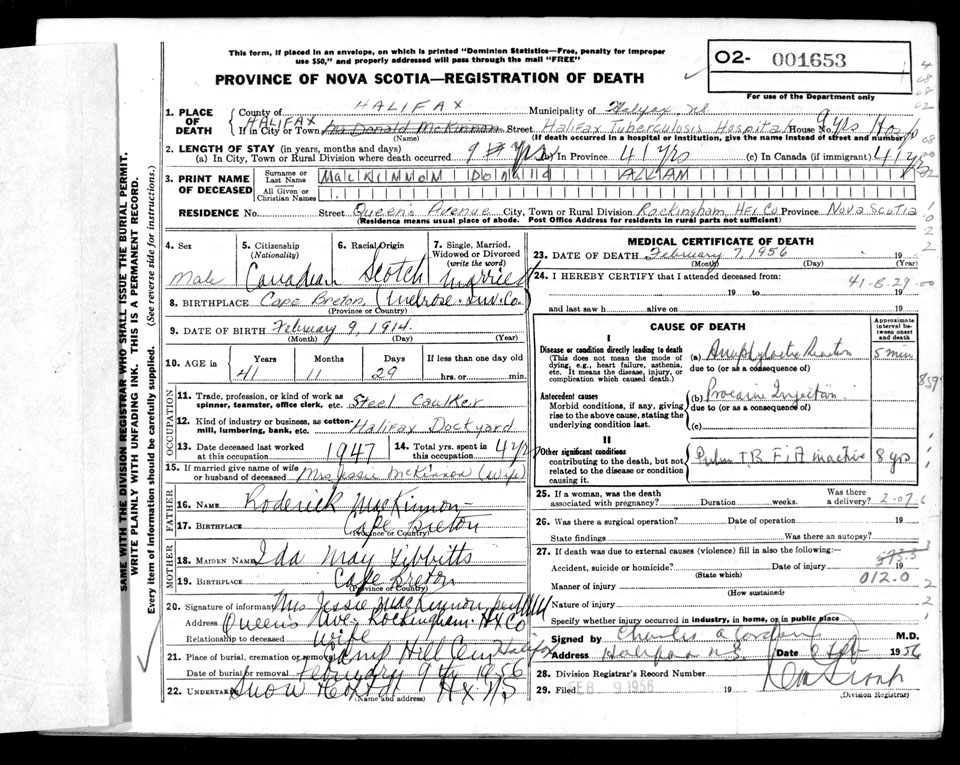 This form, if placed in an envelope, on which is printed "Dominion Statistics—Free, penalty for improper
use $50," and properly addressed will pass through the mail "FREE"
PROVINCE OF NOVA SCOTIA—REGISTRATION OF DEATH
O2- 001653
For use of the Department only
SAME WITH THE DIVISION REGISTRAR WHO SHALL ISSUE THE BURIAL PERMIT.
WRITE PLAINLY WITH UNFADING INK. THIS IS A PERMANENT RECORD.
Every item of information should be carefully supplied. (See reverse side for instructions.)
1. PLACE OF DEATH
County of HALIFAX Municipality of Halifax NS
HALIFAX
If in City or Town Donald McKinnon Street Halifax Tuberculosis Hospital House No. 9yrs Hosp
(Name) (If death occurred in a hospital or institution, give the name instead of street and number)
2. LENGTH OF STAY (in years, months and days)
(a) In City, Town or Rural Division where death occurred 9 yrs (b) In Province 41 yrs (c) In Canada (if immigrant) 41 yrs
3. PRINT NAME OF DECEASED
Surname or Last Name MacKINNON DONALD ALLAN
All Given or Christian Names
RESIDENCE No. Street Queens Avenue City, Town or Rural Division Rockingham HFX Co Province Nova Scotia
(Residence means usual place of abode. Post Office Address for residents in rural parts not sufficient)
4. Sex Male
5. Citizenship (Nationality) Canadian
6. Racial Origin Scotch
7. Single, Married, Widowed or Divorced (write the word) Married
8. BIRTHPLACE Cape Breton (Melrose Inv. Co.
(Province or Country)
9. DATE OF BIRTH February 9, 1914.
(Month) (Day) (Year)
10. AGE in Years 41 Months 11 Days 29 If less than one day old hrs. or min.
OCCUPATION
11. Trade, profession, or kind of work as spinner, teamster, office clerk, etc. Steel Caulker
12. Kind of industry or business, as cotton-mill, lumbering, bank, etc. Halifax Dockyard
13. Date deceased last worked at this occupation 1947
14. Total yrs. spent in this occupation 4 yrs
15. If married give name of wife or husband of deceased Mrs Jessie McKinnon (Wife)
FATHER
16. Name Roderick MacKinnon
17. Birthplace Cape Breton
(Province or Country)
MOTHER
18. Maiden Name Ida May Tibbitts
19. Birthplace Cape Breton
(Province or Country)
20. Signature of informant Mrs Jessie MacKinnon
Address Queens Ave. Rockingham Hx Co
Relationship to deceased wife
21. Place of burial, cremation or removal Camp Hill Cem Halifax
Date of burial or removal February 9th 1956
22. Undertaker Snow & Co Ltd Hx N/S
(Name and address)
MEDICAL CERTIFICATE OF DEATH
23. DATE OF DEATH February 7, 1956 19
(Month) (Day) (Year)
24. I HEREBY CERTIFY that I attended deceased from:
41-B.29.00
19 to 19
and last saw h alive on 19
CAUSE OF DEATH
Approximate interval between onset and death
I
Disease or condition directly leading to death
(This does not mean the mode of dying, e.g., heart failure, asthenia, etc. It means the disease, injury, or complication which caused death.)
(a) Anaphylactic Reaction 5 min
due to (or as a consequence of)
Antecedent causes
Morbid conditions, if any, giving rise to the above cause, stating the underlying condition last.
(b) Procaine Injection
due to (or as a consequence of)
(c)
859
II
Other significant conditions
contributing to the death, but not related to the disease or condition causing it.
Pulm T.B. F.A. inactive 8 yrs
25. If a woman, was the death associated with pregnancy? Duration weeks. Was there a delivery? 2-07.6
26. Was there a surgical operation? Date of operation 19
State findings Was there an autopsy?
27. If death was due to external causes (violence) fill in also the following:—
Accident, suicide or homicide? Date of injury 19
(State which)
012.0
Manner of injury
(How sustained)
Nature of injury
Specify whether injury occurred in industry, in home, or in public place
Signed by Charles A Gordon M.D.
Address Halifax N.S. Date 1956
28. Division Registrar's Record Number
29. Filed FEB 9 1956 19
(Division Registrar)